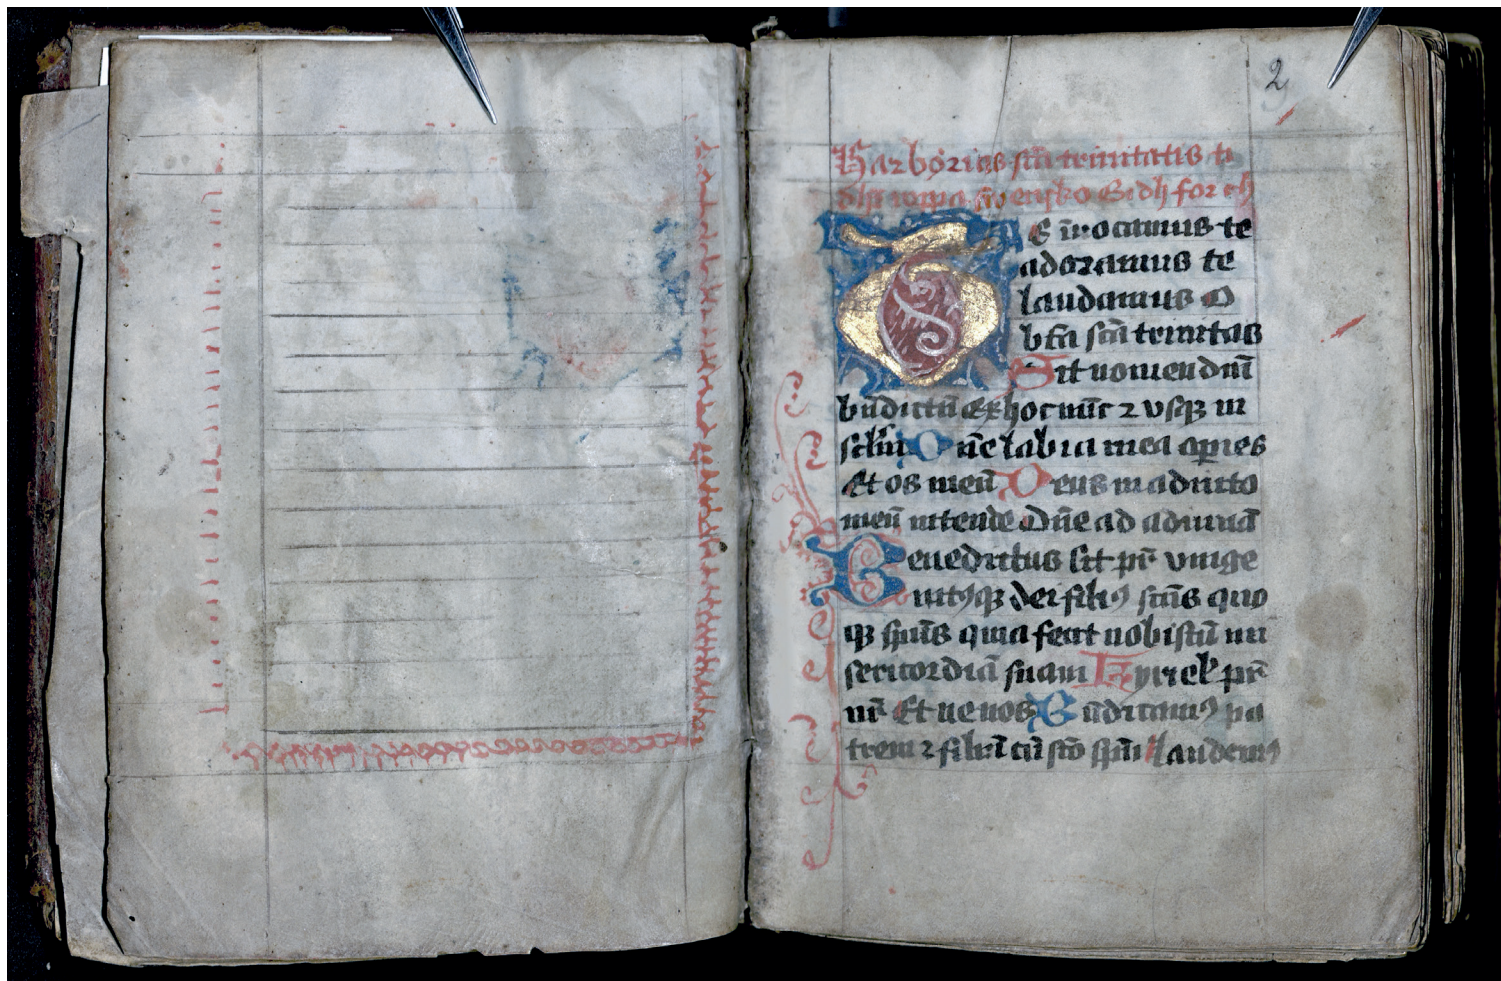 2
Har börias scī trinitatis ti
dher oppa swensko Gudh för eh
TE īvocamus te
adoramus te
laudamus O
bt̄a sc̄a trinitas
Sit nomen dn̄i
bn̄dictū Ex hoc nūc ⁊ vsqꝫ in
scl̄m Dn̄e labia mea apies
Et os meū Deus in adiuto
meū intende Dn̄e ad adiuuā
Benedictus sit pr̄ vnige
nitꝰqꝫ dei filiꝰ sctūs quo
qꝫ sp̄us quia fecit nobiscū mi
sericordiā suam Kyriel' pr̄
nr̄ Et ne nos Bn̄dicamꝰ pa
trem ⁊ filiū cū sc̄o sp̄u laudemꝰ